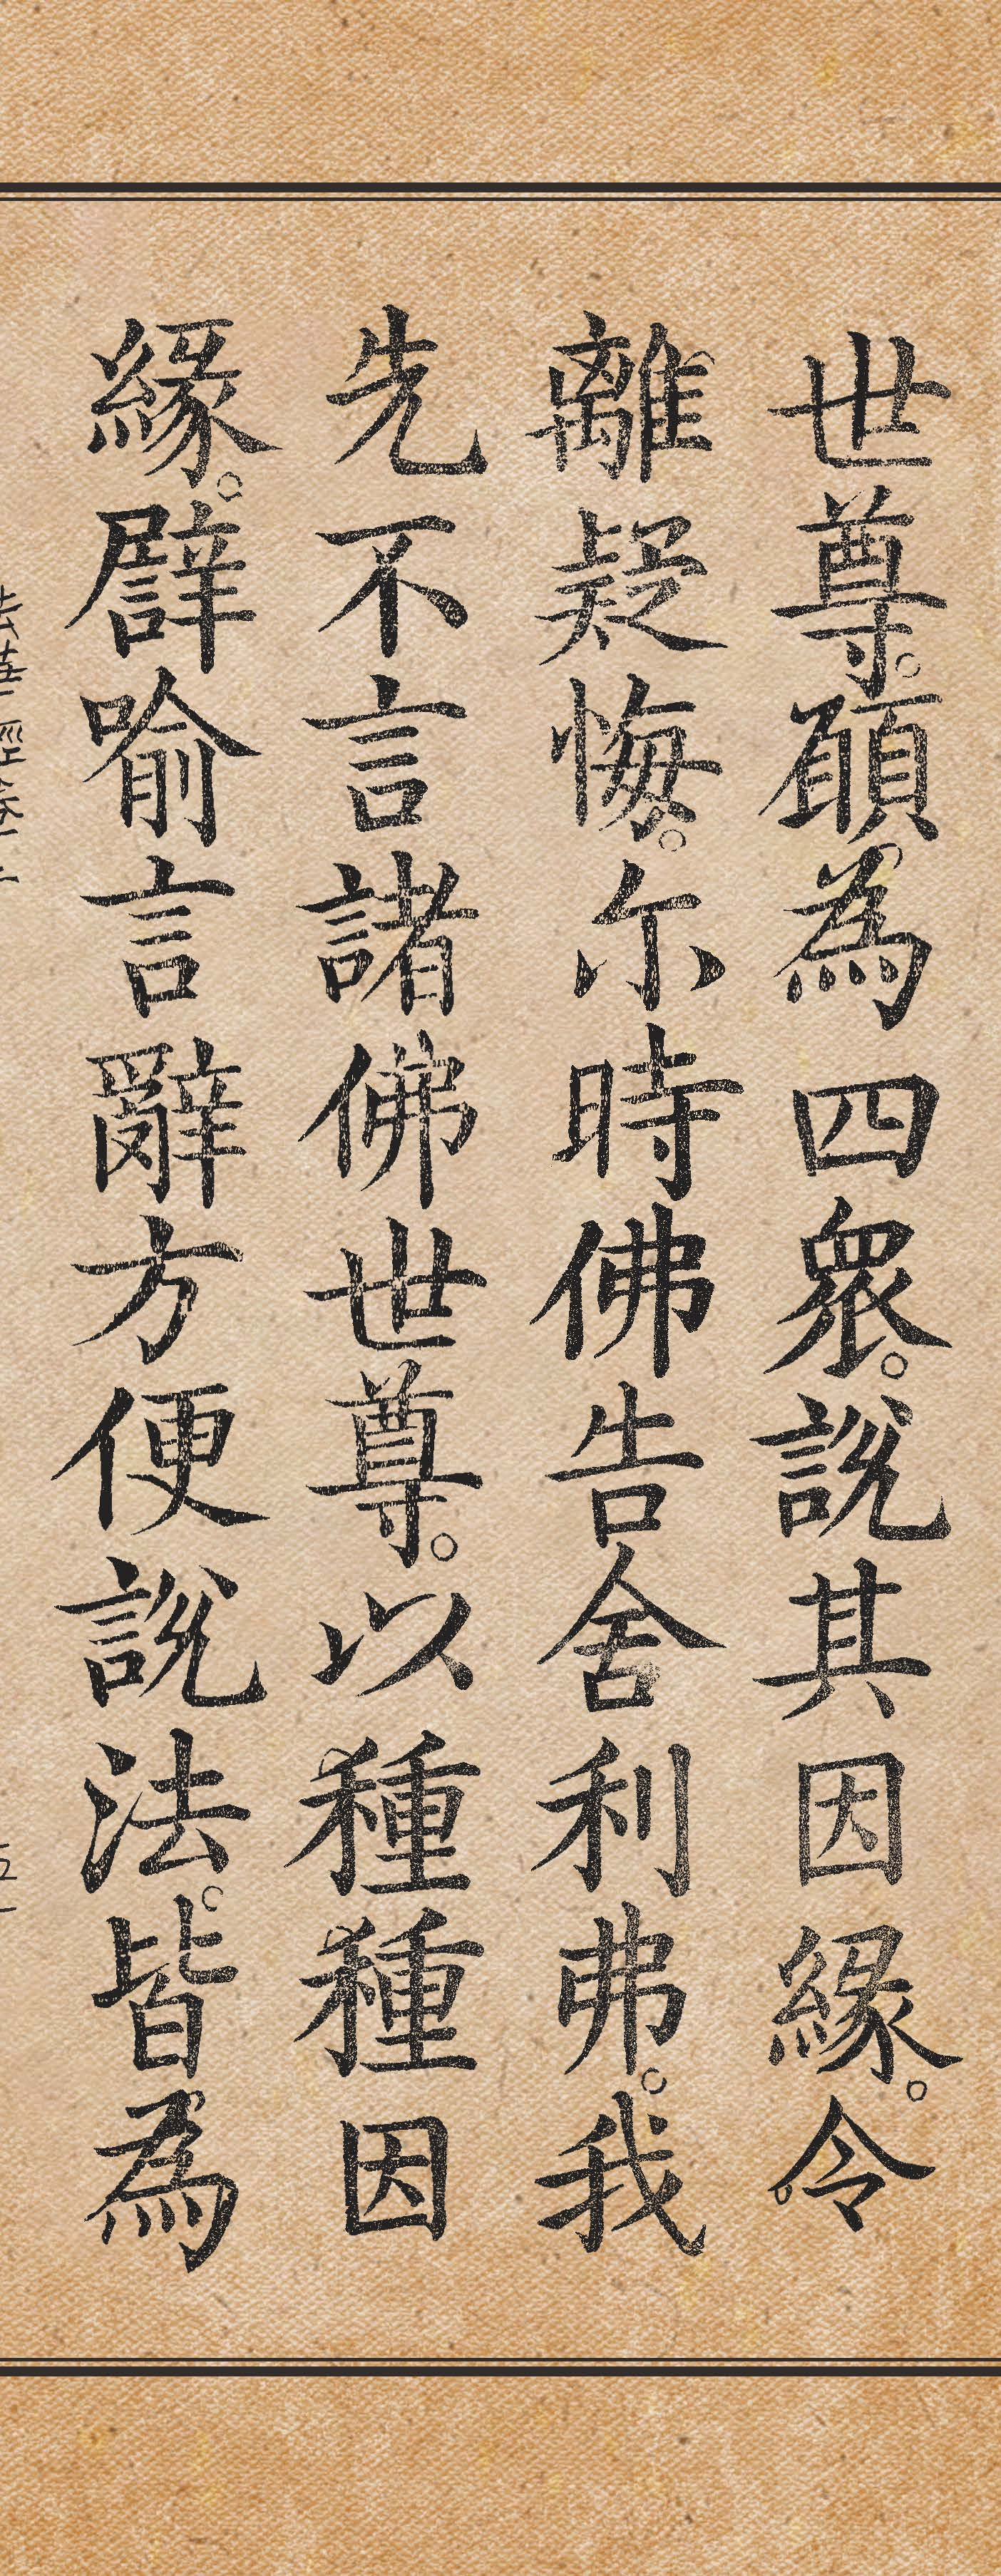 世尊。願為四衆。說其因緣。令
離疑悔。尔時佛告舍利弗。我
先不言諸佛世尊。以種種因
緣。譬喻言辭方便說法。皆為